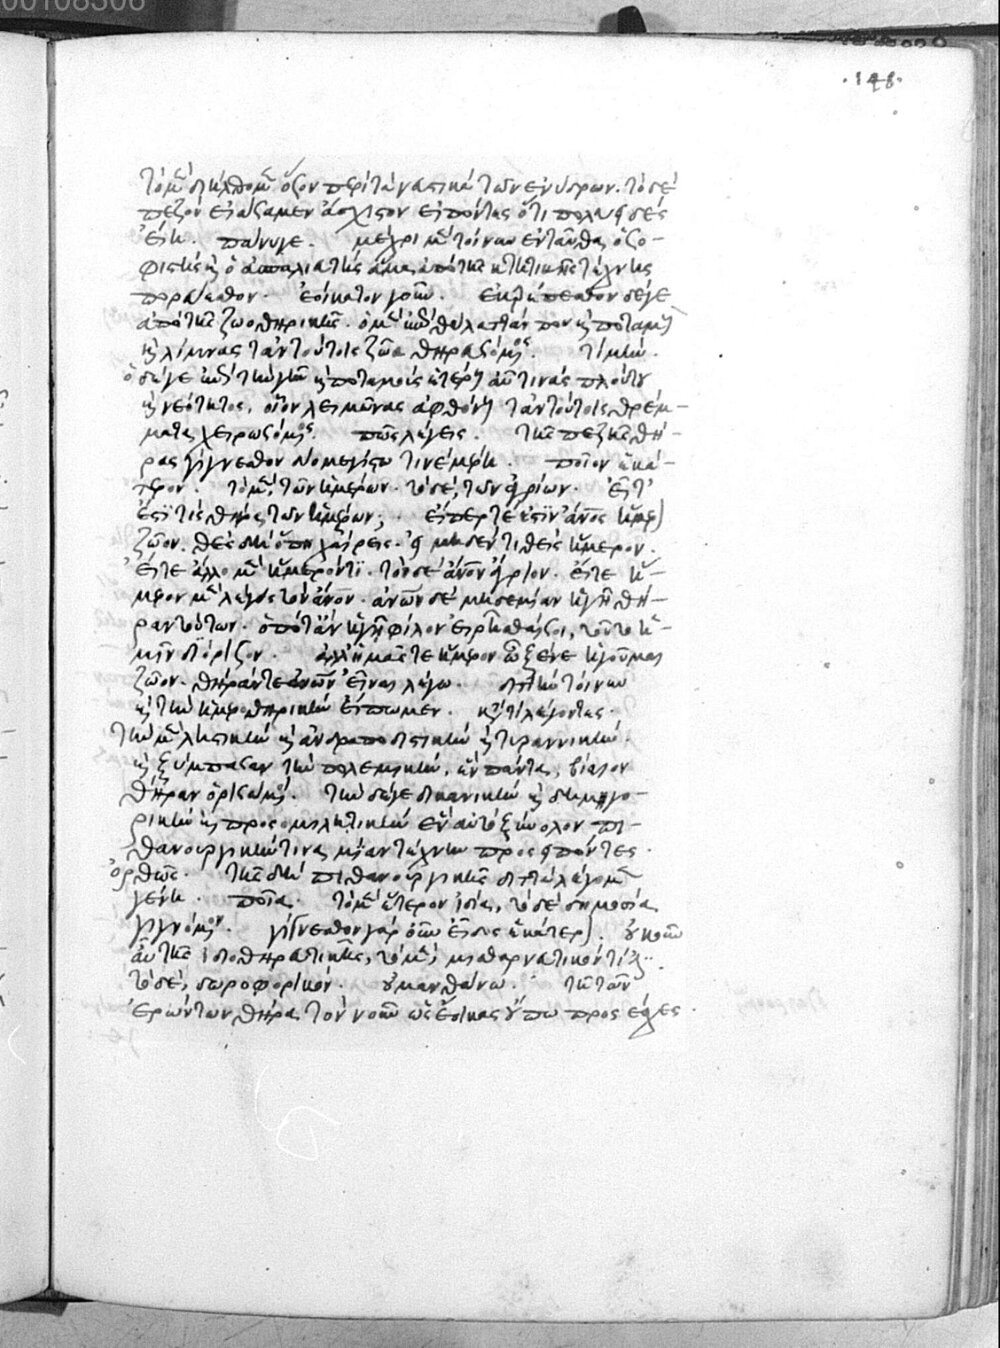 00108306
·148·
τὸ μὲν διήλθομεν ὅσον περὶ τὰ ναστικὰ τῶν ἐνύδρων. τὸ δὲ
πεζὸν εἰάσαμεν ἄσχιστον εἰπόντες ὅτι πολυειδὲς
εἴη. πάνυγε. μέχρι μὲν τοίνυν ἐνταῦθα ὁ σο-
φιστὴς καὶ ὁ ἀσπαλιευτὴς ἅμα ἀπὸ τῆς κτητικῆς τέχνης
πορεύεσθον. ἐοίκατον γοῦν. ἐκτρέπεσθον δέ γε
ἀπὸ τῆς ζωοθηρικῆς. ὁ μὲν ἐπὶ θάλατταν που καὶ ποταμοὺς
καὶ λίμνας τἀν τούτοις ζῶα θηρασόμενος. τί μήν.
ὁ δέ γε ἐπὶ τὴν γῆν καὶ ποταμοὺς ἑτέρους αὖ τινας πλούτου
καὶ νεότητος, οἷον λειμῶνας ἀφθόνους τἀν τούτοις θρέμ-
ματα χειρωσόμενος. πῶς λέγεις. τῆς πεζῆς θή-
ρας γίγνεσθον δύο μεγίστω τινε μέρη. ποῖον ἑκά-
τερον. τὸ μὲν, τῶν ἡμέρων. τὸ δὲ, τῶν ἀγρίων. εἶτ'
ἔστι τις θήρα τῶν ἡμέρων; εἴπερ γέ ἐστιν ἄνθρωπος ἥμερον
ζῶον. θὲς δὲ ὅπη χαίρεις. εἴτε μηδὲν τιθεὶς ἥμερον.
εἴτε ἄλλο μὲν ἥμερόν τι. τὸν δὲ ἄνθρωπον ἄγριον. εἴτε ἥ-
μερον μὲν λέγεις τὸν ἄνθρωπον. ἀνθρώπων δὲ μηδεμίαν ἡγῆ θή-
ραν τούτων. ὁπότερ' ἂν ἡγῆ φίλον εἰρῆσθαί σοι, τοῦτο ἡ-
μῖν διόρισον. ἀλλ' ἡμᾶς τε ἥμερον ὦ ξένε ἡγοῦμαι
ζῶον. θήραν τε ἀνθρώπων εἶναι λέγω. διττὴν τοίνυν
καὶ τὴν ἡμεροθηρικὴν εἴπωμεν. κατὰ τί λέγοντες.
τὴν μὲν ληστικὴν καὶ ἀνδραποδιστικὴν καὶ τυραννικὴν
καὶ ξύμπασαν τὴν πολεμικὴν, ἓν πάντα, βίαιον
θήραν ὁρισάμενοι. τὴν δέ γε δικανικὴν καὶ δημηγο-
ρικὴν καὶ προσομιλητικὴν ἓν αὖ τὸ ξύνολον πι-
θανουργικήν τινα μίαν τέχνην προσειπόντες.
ὀρθῶς. τῆς δὴ πιθανουργικῆς διττὰ λέγομεν
γένη. ποῖα. τὸ μὲν ἕτερον ἰδίᾳ, τὸ δὲ δημοσίᾳ
γιγνόμενον. γίγνεσθον γὰρ οὖν εἶδος ἑκάτερον. οὐκοῦν
αὖ τῆς ἰδιοθηρατικῆς, τὸ μὲν, μισθαρνητικόν ἐστι
τὸ δὲ, δωροφορικόν. οὐ μανθάνω. τῇ τῶν
ἐρώντων θήρᾳ τὸν νοῦν ὡς ἔοικας οὔπω προσέσχες.